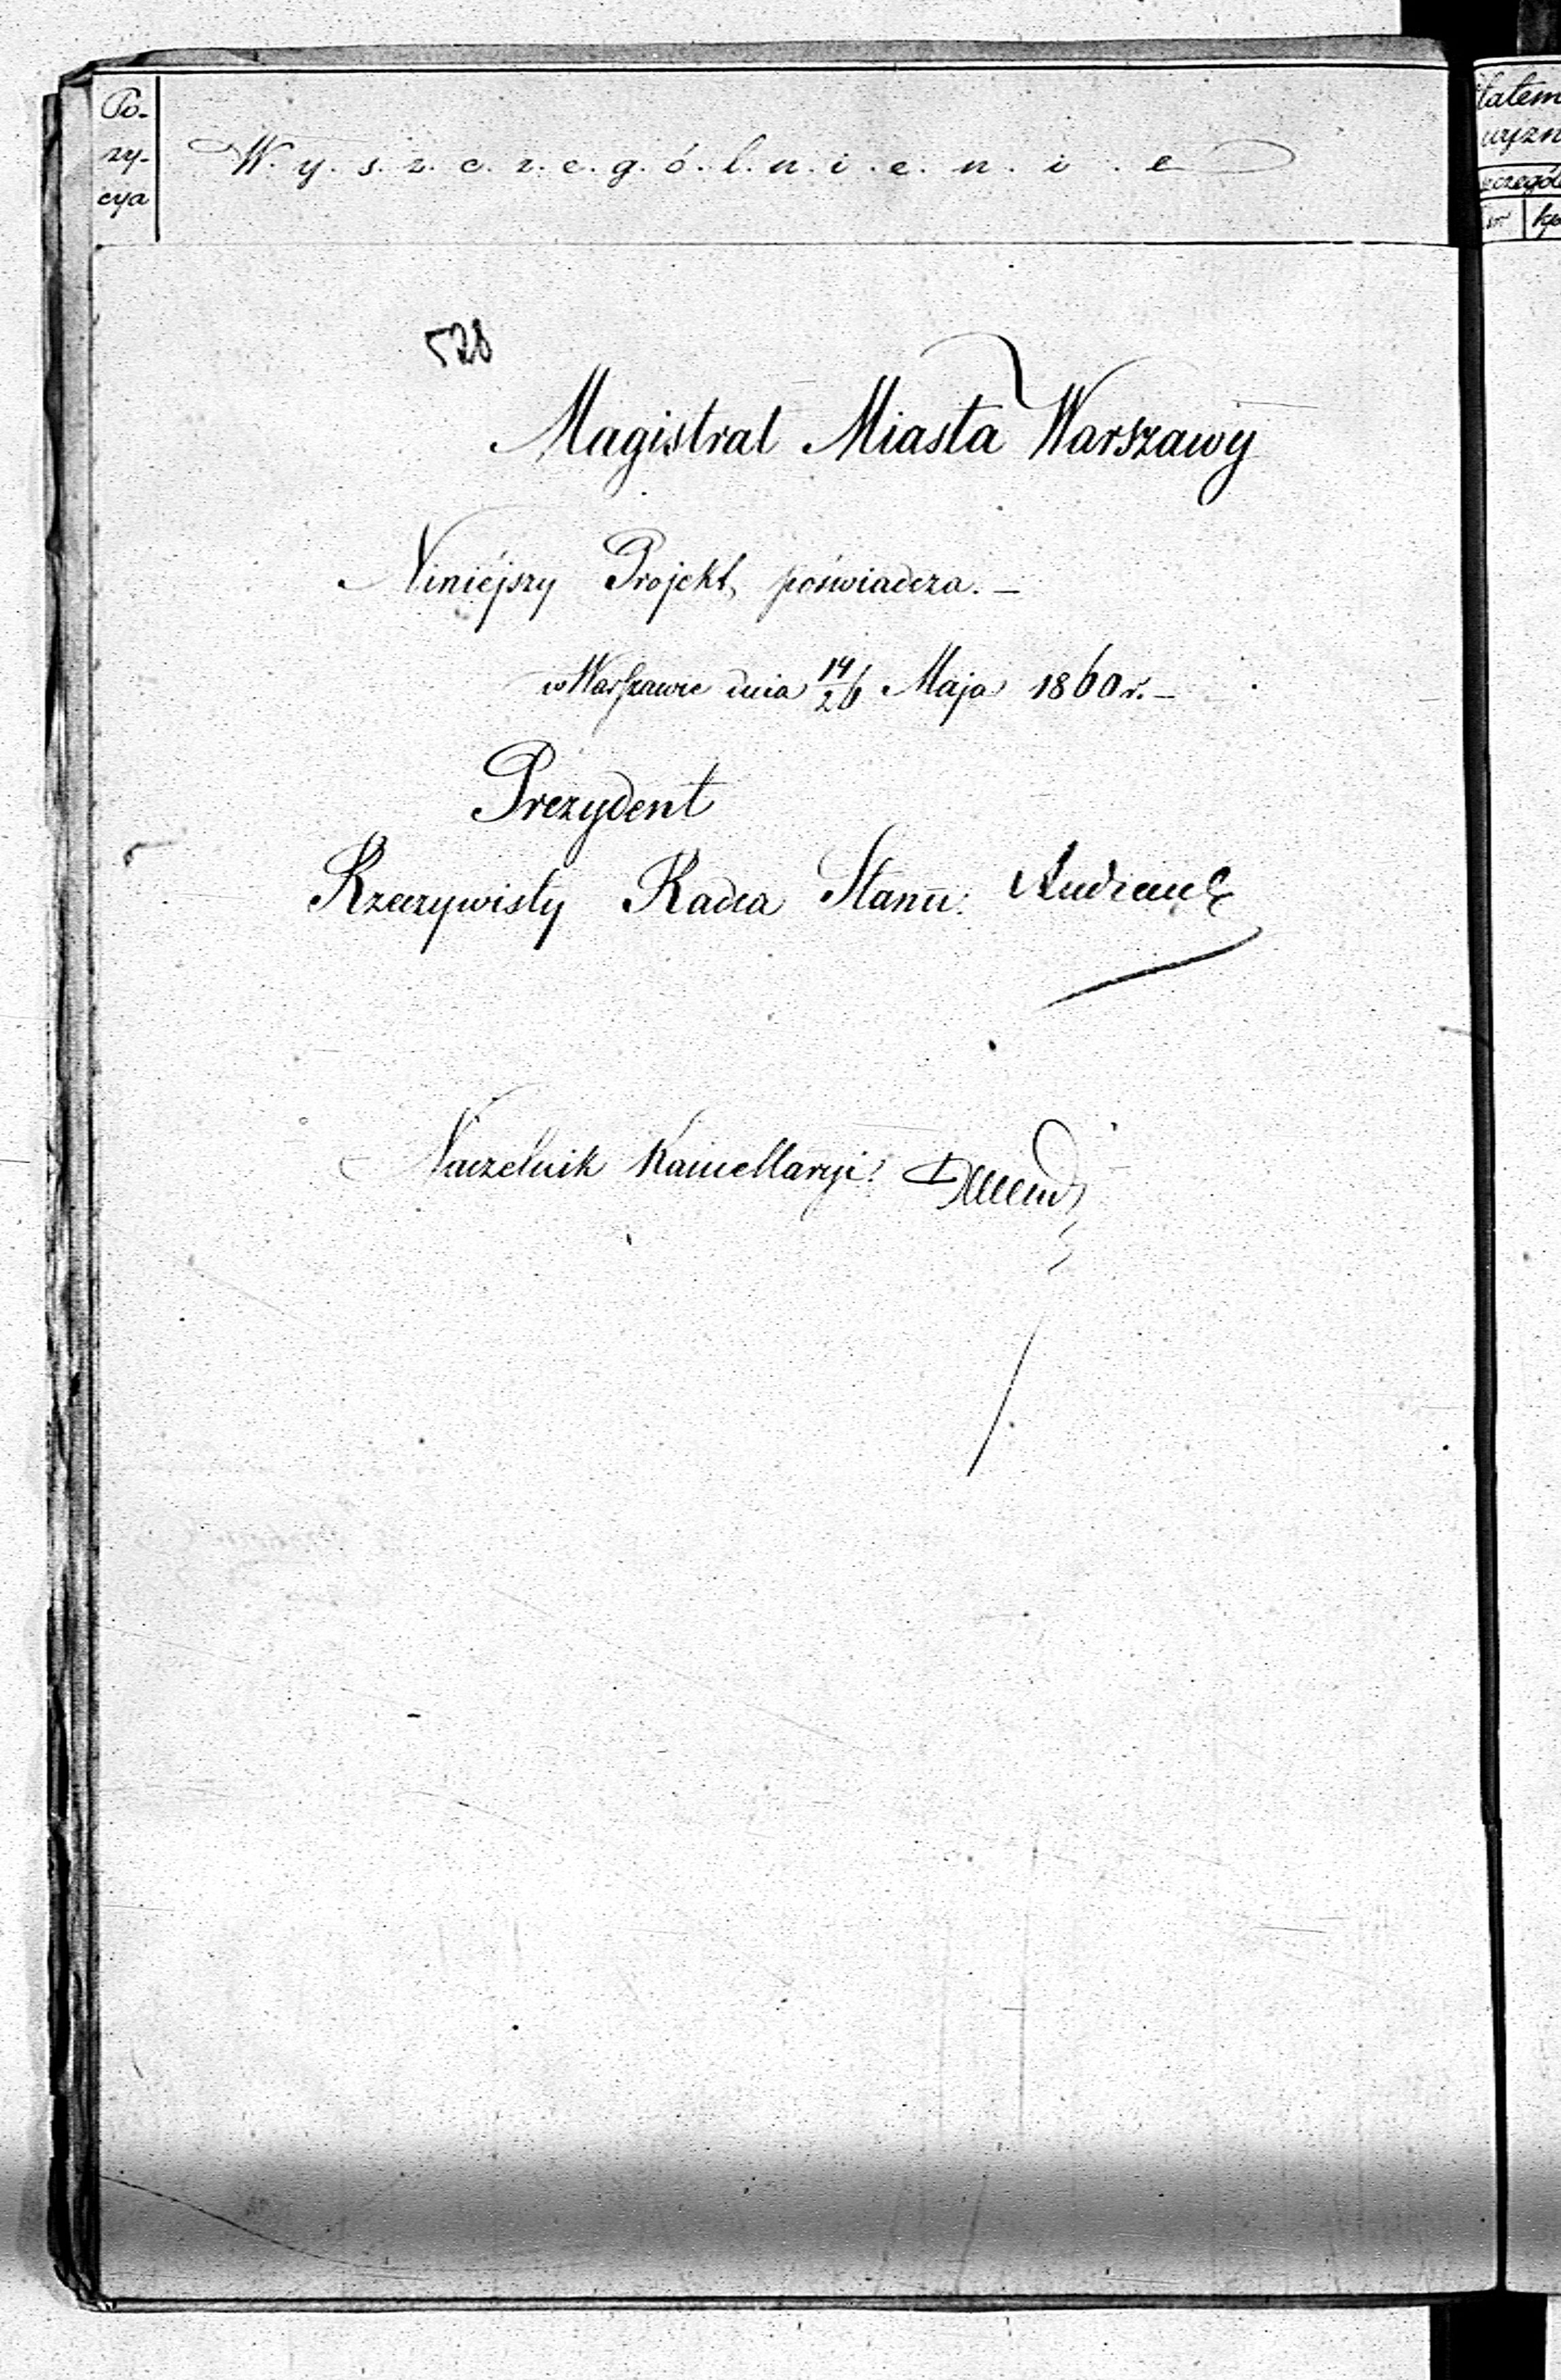 Po-
zy-
cya
W.y.s.z.c.z.e.g.ó.l.n.i.e.n.i.e
528
Magistrat Miasta Warszawy
Niniéjszy Projekt poświadcza. —
w Warszawie dnia 14/26 Maja 1860 r. —
Prezydent
Rzeczywisty Radca Stanu: Andrault
Naczelnik Kancellaryi: